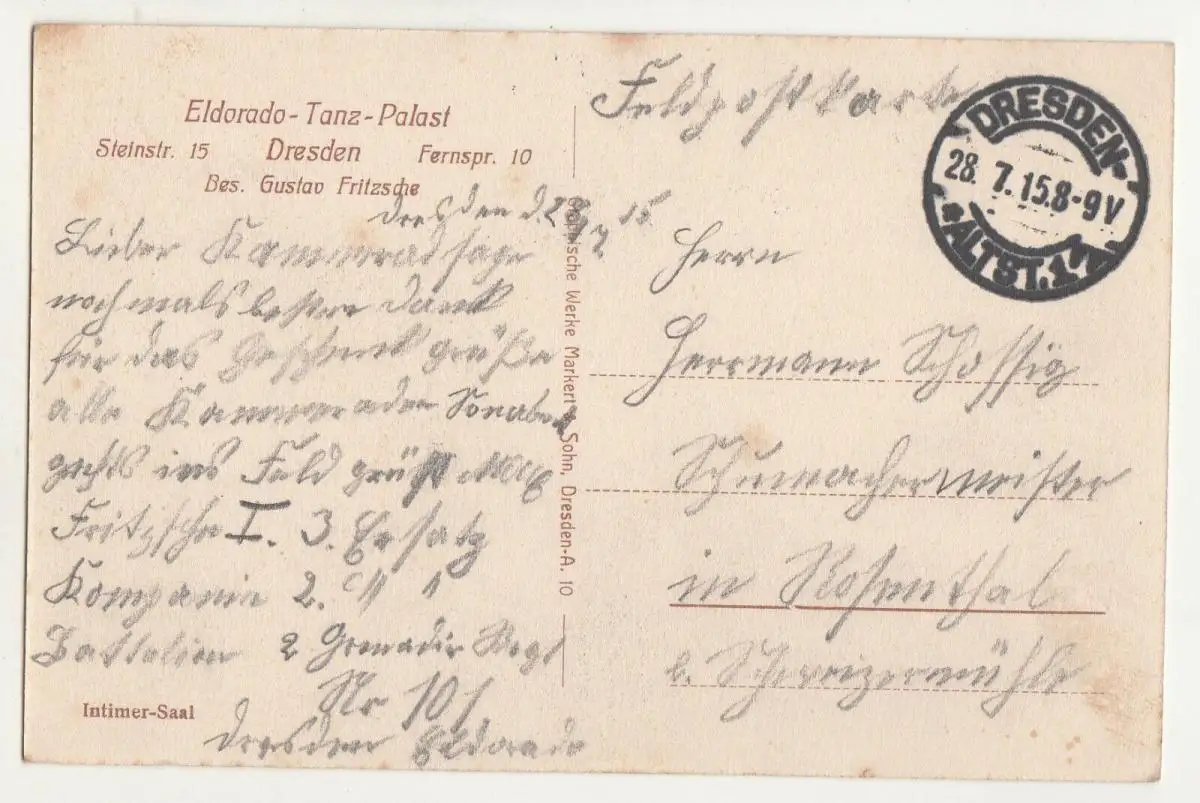 Eldorado-Tanz-Palast
Steinstr. 15 Dresden Fernspr. 10
Bes. Gustav Fritzsche
Dresden d. 15.
Lieber Kammerad sage
nochmals besten Dank
für das Geschenk grüße
alle Kammeraden Sonabend
gehts ins Feld grüßt Max
Fritzsche I. 3. Ersatz
Kompanie 2.
Battalion 2 Grenadir Regt
Nr 101
Dresden Eldorado
Intimer-Saal
Graphische Werke Markert & Sohn, Dresden-A. 10
Feldpostkarte
DRESDEN-
28. 7. 15. 8-9V
*ALTST. 1
Herrn
Herrmann Schossig
Schumachermeister
in Rosenthal
b. Schweizermühle